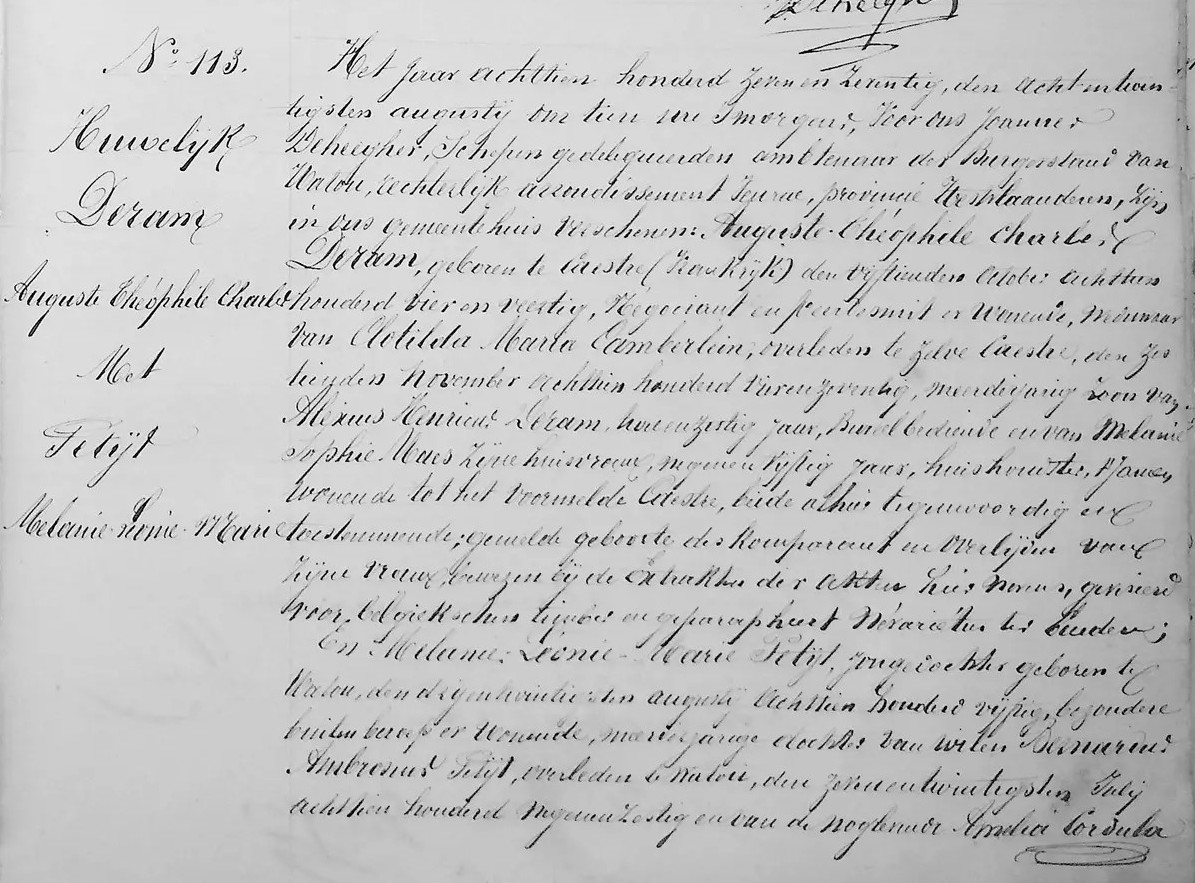 Deheegher
N° 113.
Huwelijk
Deram
Auguste Théophile Charles
Met
Petijt
Melanie-Leonie-Marie
Het Jaar achttien honderd zeven en zeventig, den acht en twin-
tigsten augustij om tien ure s'morgens, Voor ons Joannes
Deheegher, Schepen gedelegueerden ambtenaar des Burgerstand van
Watou, rechterlijk arrondissement Veurne, provincie Westvlaanderen, zijn
in ons gemeentehuis verschenen: Auguste-Théophile Charles
Deram, geboren te Caestre (Frankrijk) den vijftienden October achttien
honderd vier en veertig, Negociant en er wonende, weduwaar
van Clotilda Maria Camberlein, overleden te zelve Caestre, den zes
tienden November achttien honderd vier en zeventig, meerdejarig zoon van
Alexius Henricus Deram, jaar, bediende en van Melanie
Sophie Maes zijne huisvrouw, negen en vijftig jaar, huishoudster, t'samen
wonende tot het voormelde Caestre, beide alhier tegenwoordig en
toestemmende; gemelde geboorte des komparant en overlijden van
zijne vrouw, bewezen bij de Extrakten der akten hier nevens, geviseerd
voor Belgiekschen timber en geparapheert Nevarietur ter
En Melanie-Léonie-Marie Petijt, jongedochter geboren te
Watou, den drij en twintigsten augustij achttien honderd vijftig, bezondere
buiten beroep er wonende, meerderjarige dochter van wilen Bernardus
Ambrosius Petijt, overleden te Watou, den zeven en twintigsten Julij
achttien honderd negen en zestig en van de nogtewude Amelia Cordula